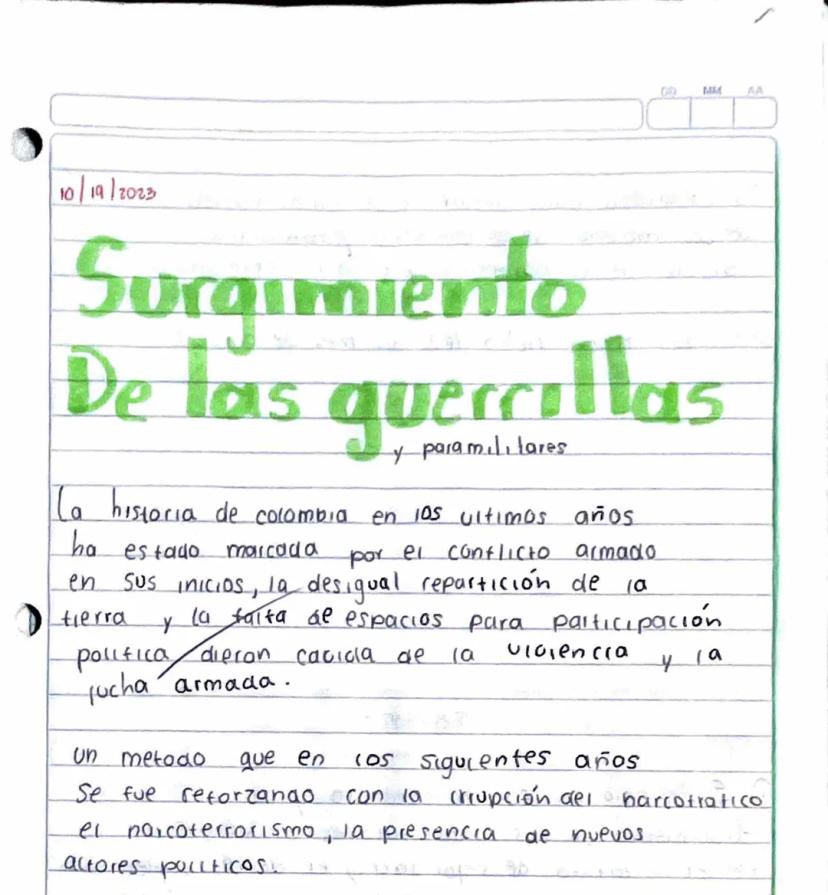 DD MM AA
10/19/2023
Surgimiento
De las guerrillas
y paramilitares
La historia de colombia en los ultimos años
ha estado marcada por el conflicto armado
en sus inicios, la desigual repartición de la
tierra y la falta de espacios para participación
politica dieron cavida de la violencia y la
lucha armada.
un metodo que en los siguientes años
se fue reforzando con la irrupción del narcotrafico
el narcoterrorismo, la presencia de nuevos
actores politicos.